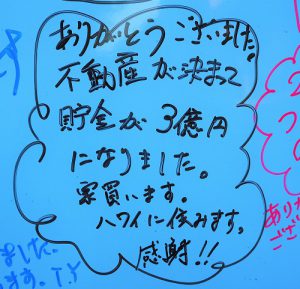 ありがとうございました。
不動産が決まって
貯金が3億円
になりました。
家買います。
ハワイに住みます。
感謝!!
ました。
ます。T.Y
ありが
ござ